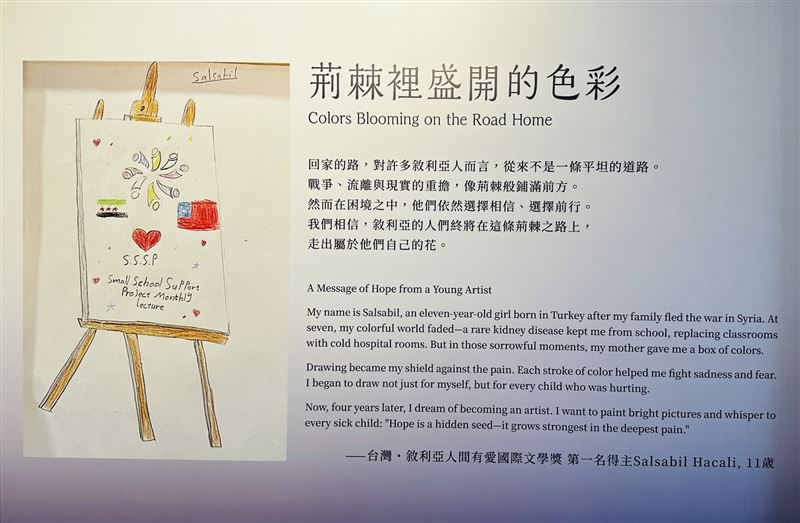 Salsabil
S.S.S.P
Small School Support
Project Monthly
lecture
荊棘裡盛開的色彩
Colors Blooming on the Road Home
回家的路，對許多敘利亞人而言，從來不是一條平坦的道路。
戰爭、流離與現實的重擔，像荊棘般鋪滿前方。
然而在困境之中，他們依然選擇相信、選擇前行。
我們相信，敘利亞的人們終將在這條荊棘之路上，
走出屬於他們自己的花。
A Message of Hope from a Young Artist
My name is Salsabil, an eleven-year-old girl born in Turkey after my family fled the war in Syria. At
seven, my colorful world faded—a rare kidney disease kept me from school, replacing classrooms
with cold hospital rooms. But in those sorrowful moments, my mother gave me a box of colors.
Drawing became my shield against the pain. Each stroke of color helped me fight sadness and fear.
I began to draw not just for myself, but for every child who was hurting.
Now, four years later, I dream of becoming an artist. I want to paint bright pictures and whisper to
every sick child: "Hope is a hidden seed—it grows strongest in the deepest pain."
——台灣・敘利亞人間有愛國際文學獎 第一名得主Salsabil Hacali, 11歲